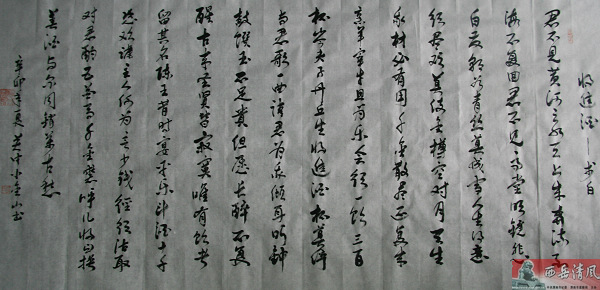 将进酒——李白
君不见黄河之水天上来奔流到
海不复回君不见高堂明镜悲
白发朝如青丝暮成雪人生得意
须尽欢莫使金樽空对月天生
我材必有用千金散尽还复来
烹羊宰牛且为乐会须一饮三百
杯岑夫子丹丘生将进酒杯莫停
与君歌一曲请君为我倾耳听钟
鼓馔玉不足贵但愿长醉不复
醒古来圣贤皆寂寞唯有饮者
留其名陈王昔时宴平乐斗酒十千
恣欢谑主人何为言少钱径须沽取
对君酌五花马千金裘呼儿将出换
美酒与尔同销万古愁
辛卯年夏
西岳清风